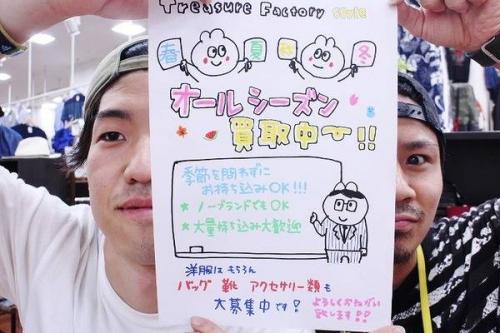 Treasure Factory style
春 夏 秋 冬
オールシーズン
買取中〜!!
季節を問わずに
お持ち込みOK!!!
★ ノーブランドでもOK
★ 大量持ち込み大歓迎
洋服はもちろん
バッグ 靴 アクセサリー類も
大募集中です!
よろしくおねがい
致します!!